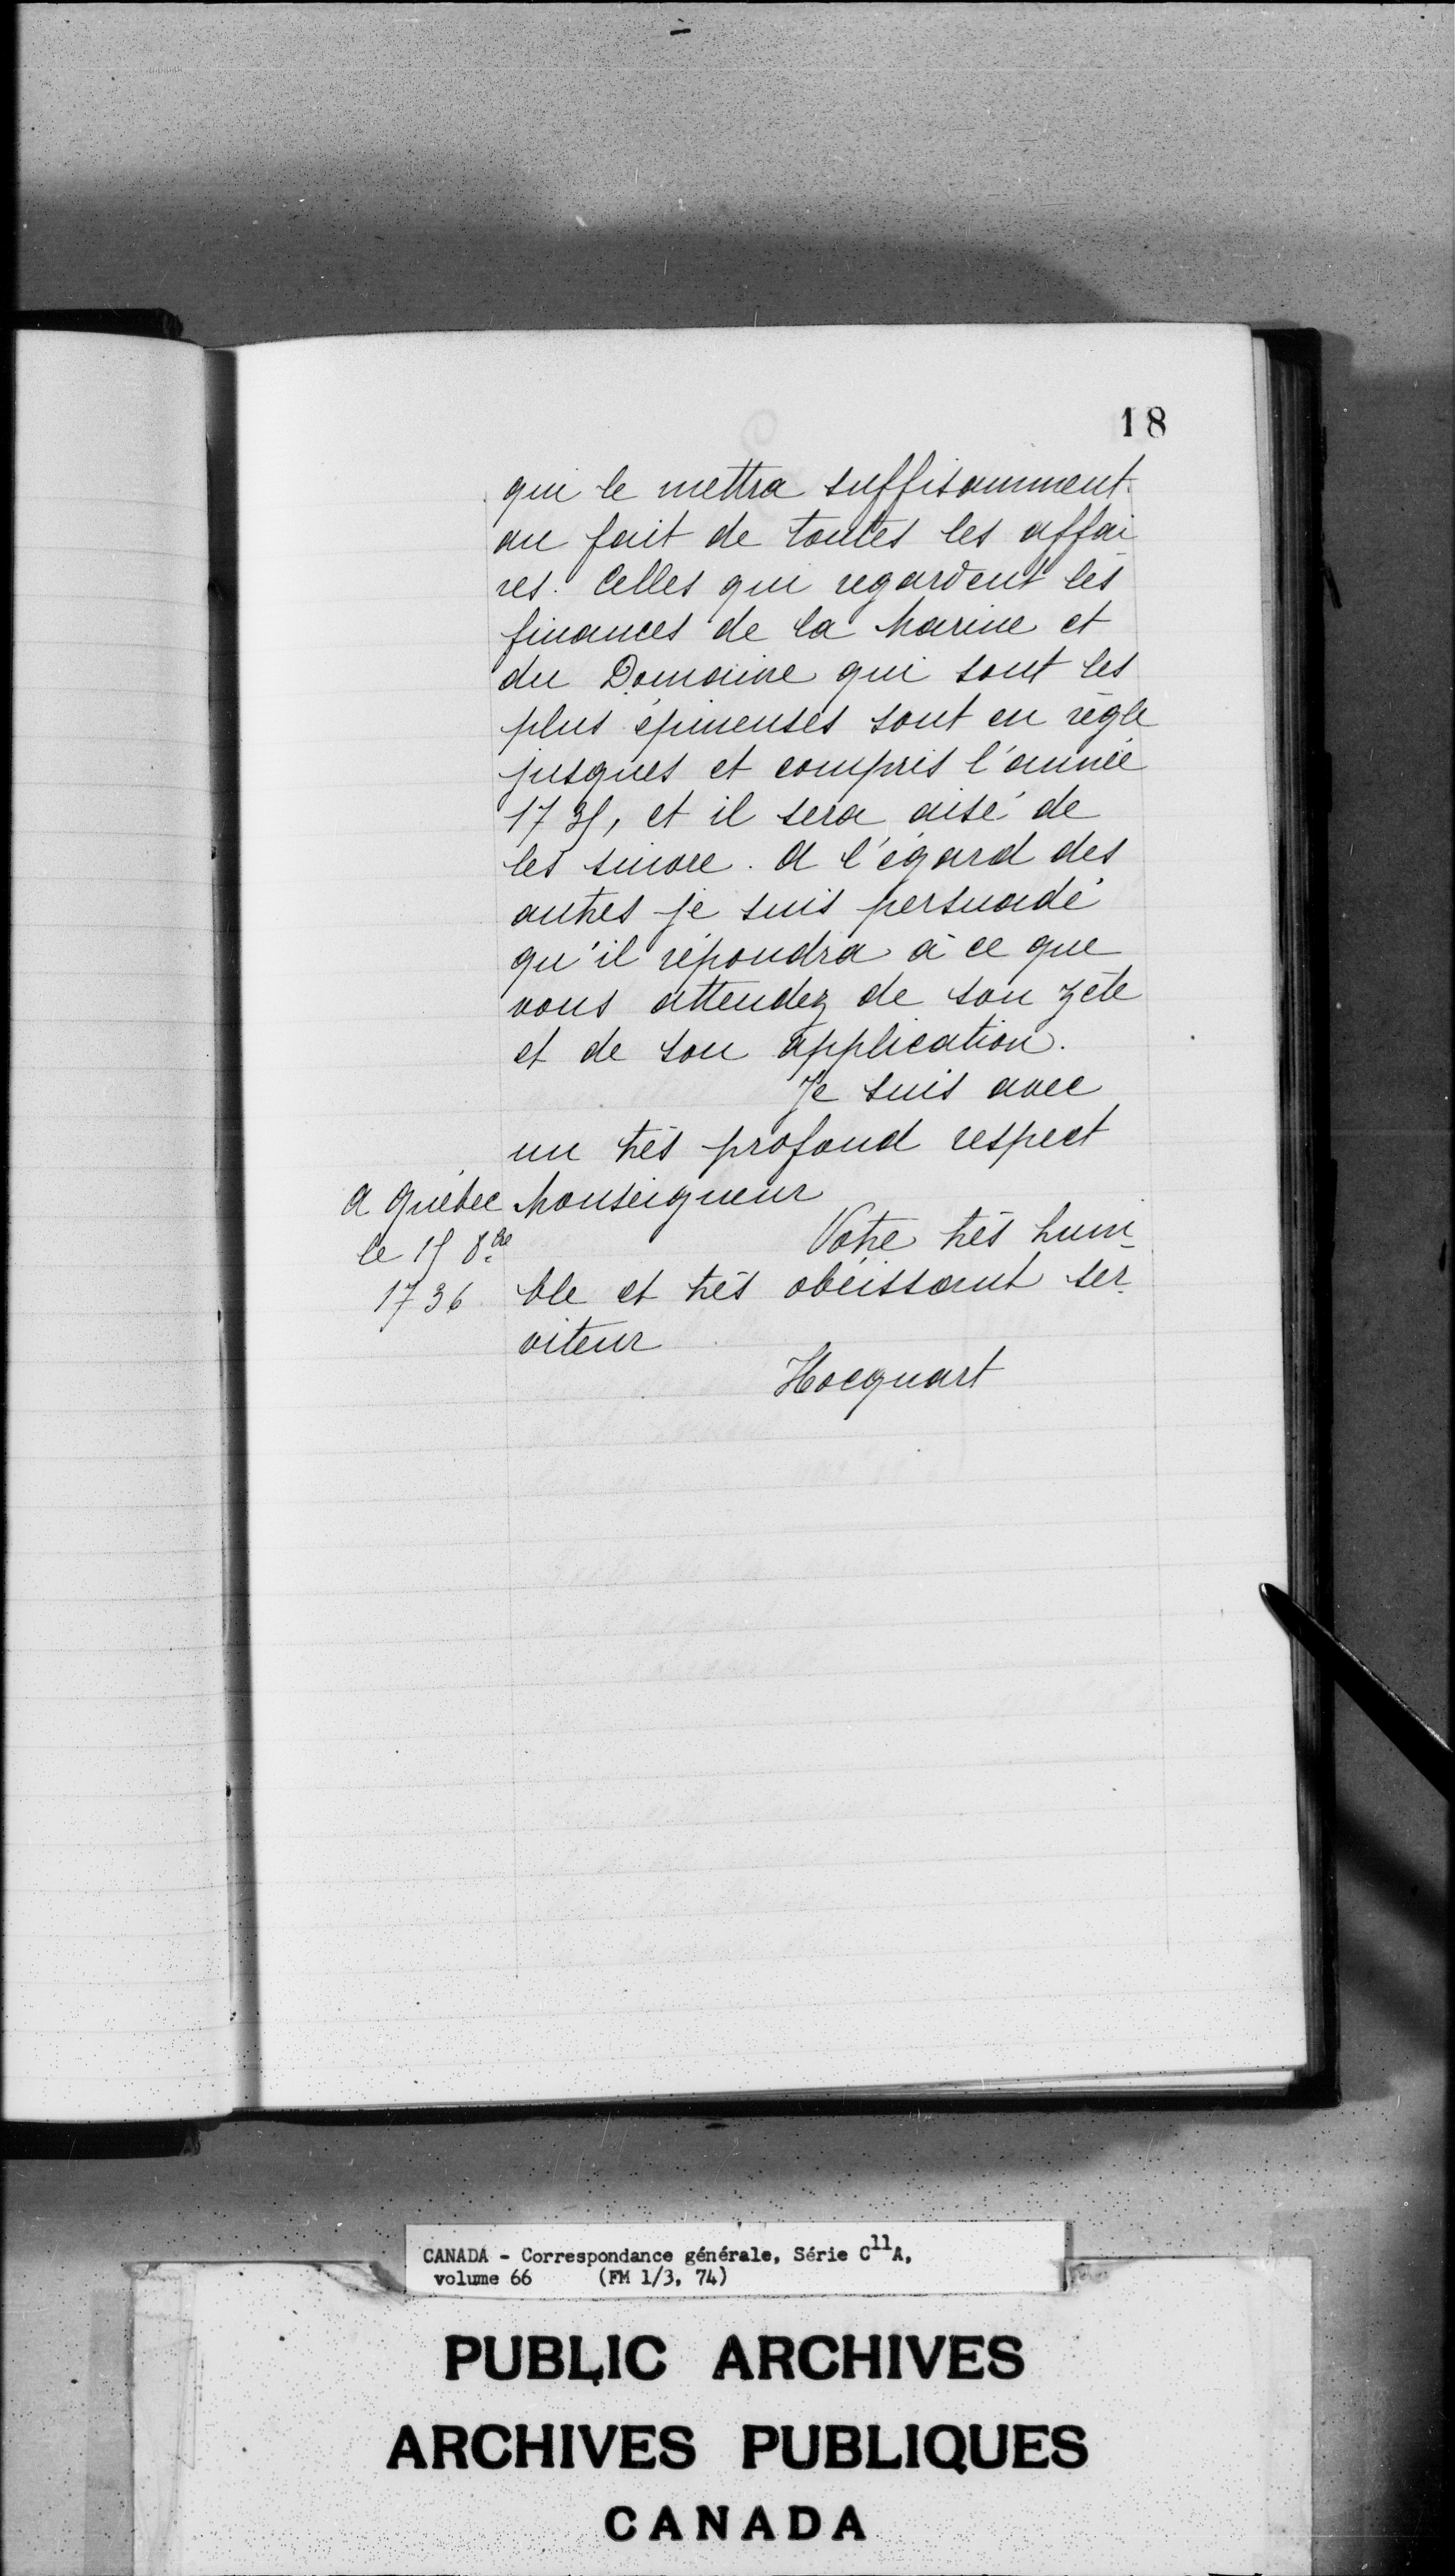 18
qui le mettra suffisamment
au fait de toutes les affai
res. Celles qui regardent les
finances de la Marine et
du Domaine qui sont les
plus épineuses sont en règle
jusques et compris l'année
1735, et il sera aisé de
les suivre. A l'égard des
autres je suis persuadé
qu'il répondra à ce que
vous attendez de son zèle
et de son application.
Je suis avec
un très profond respect
Monseigneur
A Québec
le 15 8bre
1736
Votre très hum-
ble et très obéissant ser-
viteur
Hocquart
CANADA - Correspondance générale, Série C11A,
volume 66 (FM 1/3, 74)
PUBLIC ARCHIVES
ARCHIVES PUBLIQUES
CANADA